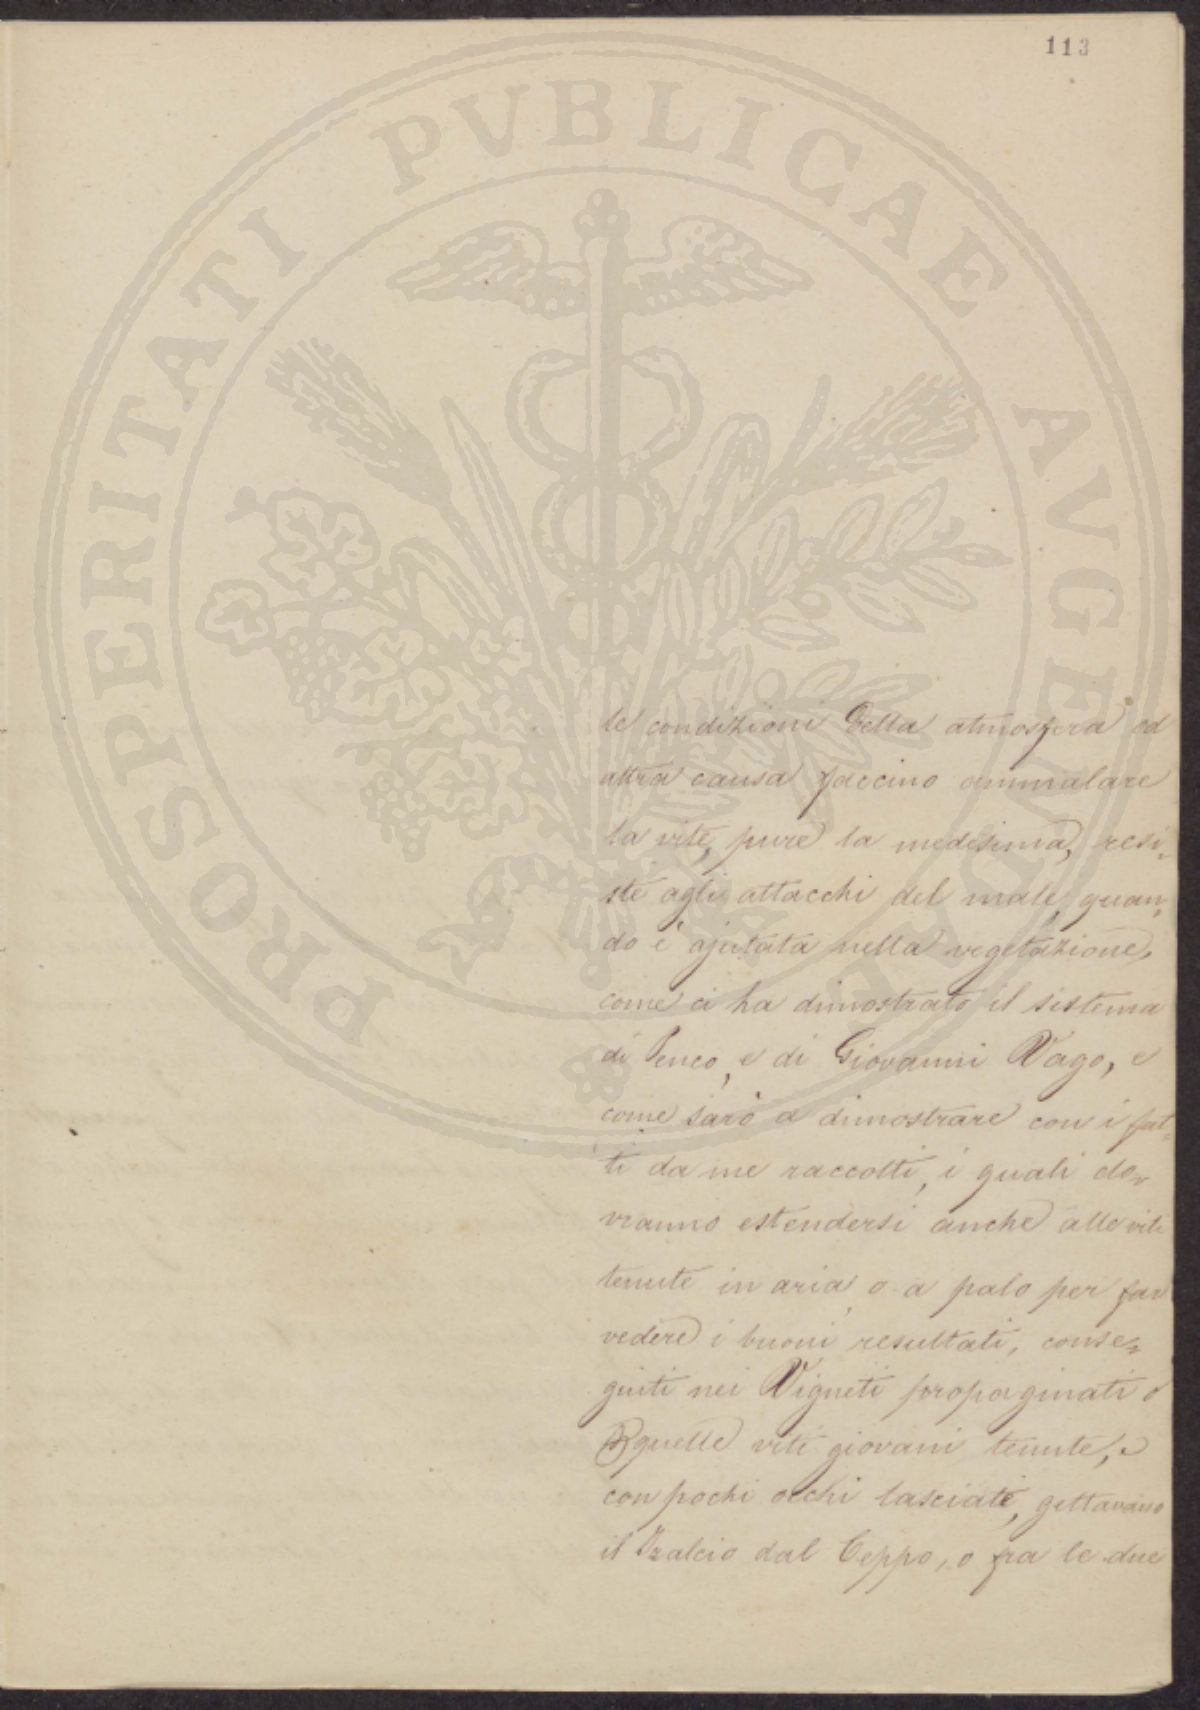 113
PROSPERITATI PVBLICAE AVGENDAE
le condizioni della atmosfera od
altra causa faccino ammalare
la vite, pure la medesima, resi-
ste agli attacchi del male, quan-
do è ajutata nella vegetazione,
come ci ha dimostrato il sistema
di Penco, e di Giovanni Vago, e
come sarò a dimostrare con i fat-
ti da me raccolti, i quali do-
vranno estendersi anche alle viti
tenute in aria, o a palo per far
vedere i buoni resultati, conse-
guiti nei Vigneti propaginati o
quelle viti giovani tenute, e
con pochi occhi lasciate, gettavano
il Tralcio dal Ceppo, o fra le due